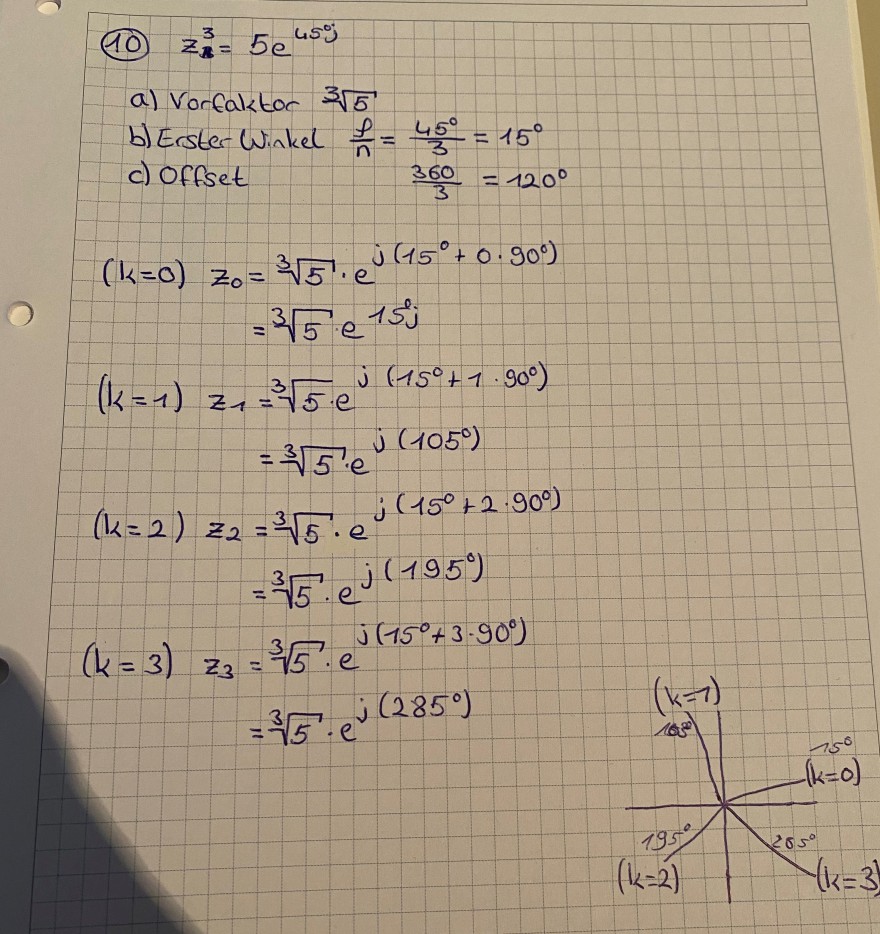 10 z³ = 5e^45°j
a) Vorfaktor ³√5
b) Erster Winkel φ/n = 45°/3 = 15°
c) Offset 360/3 = 120°
(k=0) z₀ = ³√5 · e^j(15° + 0 · 90°)
= ³√5 · e^15°j
(k=1) z₁ = ³√5 · e^j(15° + 1 · 90°)
= ³√5 · e^j(105°)
(k=2) z₂ = ³√5 · e^j(15° + 2 · 90°)
= ³√5 · e^j(195°)
(k=3) z₃ = ³√5 · e^j(15° + 3 · 90°)
= ³√5 · e^j(285°)
(k=1)
105°
15°
(k=0)
195°
(k=2)
285°
(k=3)